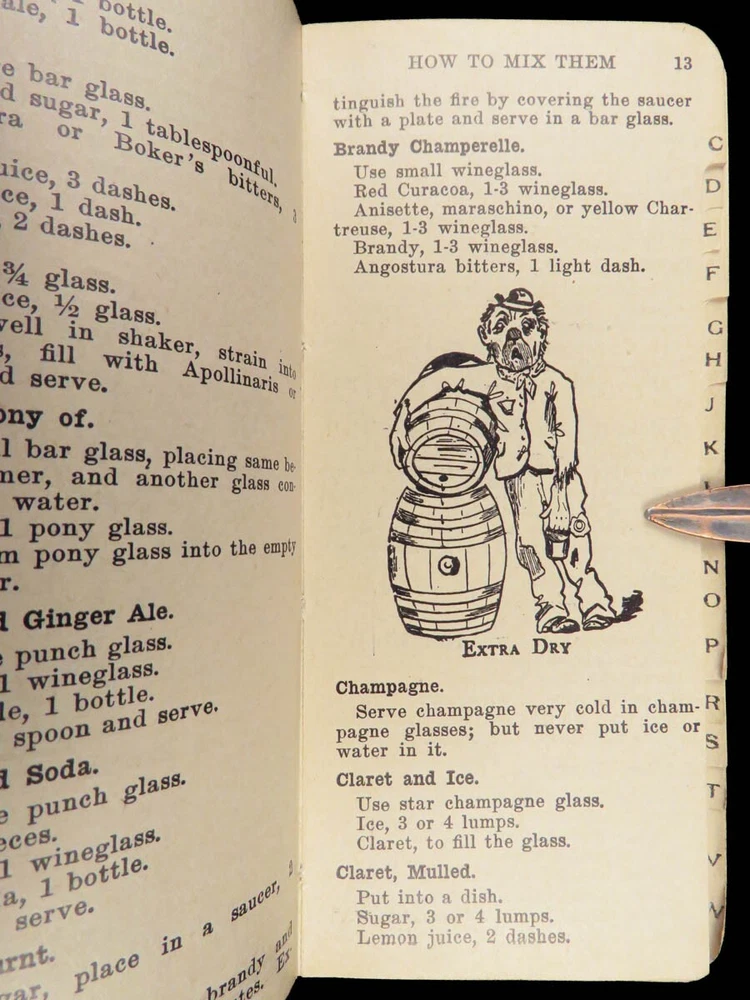 bottle.
ale, 1 bottle.
e bar glass.
d sugar, 1 tablespoonful.
ra or Boker's bitters,
uice, 3 dashes.
ce, 1 dash.
, 2 dashes.
¾ glass.
ce, ½ glass.
well in shaker, strain into
s, fill with Apollinaris or
d serve.
ony of.
l bar glass, placing same be-
mer, and another glass con-
water.
1 pony glass.
m pony glass into the empty
r.
d Ginger Ale.
e punch glass.
1 wineglass.
le, 1 bottle.
spoon and serve.
d Soda.
e punch glass.
eces.
1 wineglass.
a, 1 bottle.
serve.
urnt.
gar, place in a saucer, 2
brandy and
tes. Ex-
HOW TO MIX THEM 13
tinguish the fire by covering the saucer
with a plate and serve in a bar glass.
Brandy Champerelle.
Use small wineglass.
Red Curacoa, 1-3 wineglass.
Anisette, maraschino, or yellow Char-
treuse, 1-3 wineglass.
Brandy, 1-3 wineglass.
Angostura bitters, 1 light dash.
EXTRA DRY
Champagne.
Serve champagne very cold in cham-
pagne glasses; but never put ice or
water in it.
Claret and Ice.
Use star champagne glass.
Ice, 3 or 4 lumps.
Claret, to fill the glass.
Claret, Mulled.
Put into a dish.
Sugar, 3 or 4 lumps.
Lemon juice, 2 dashes.
C
D
E
F
G
H
J
K
N
O
P
R
S
T
V
W